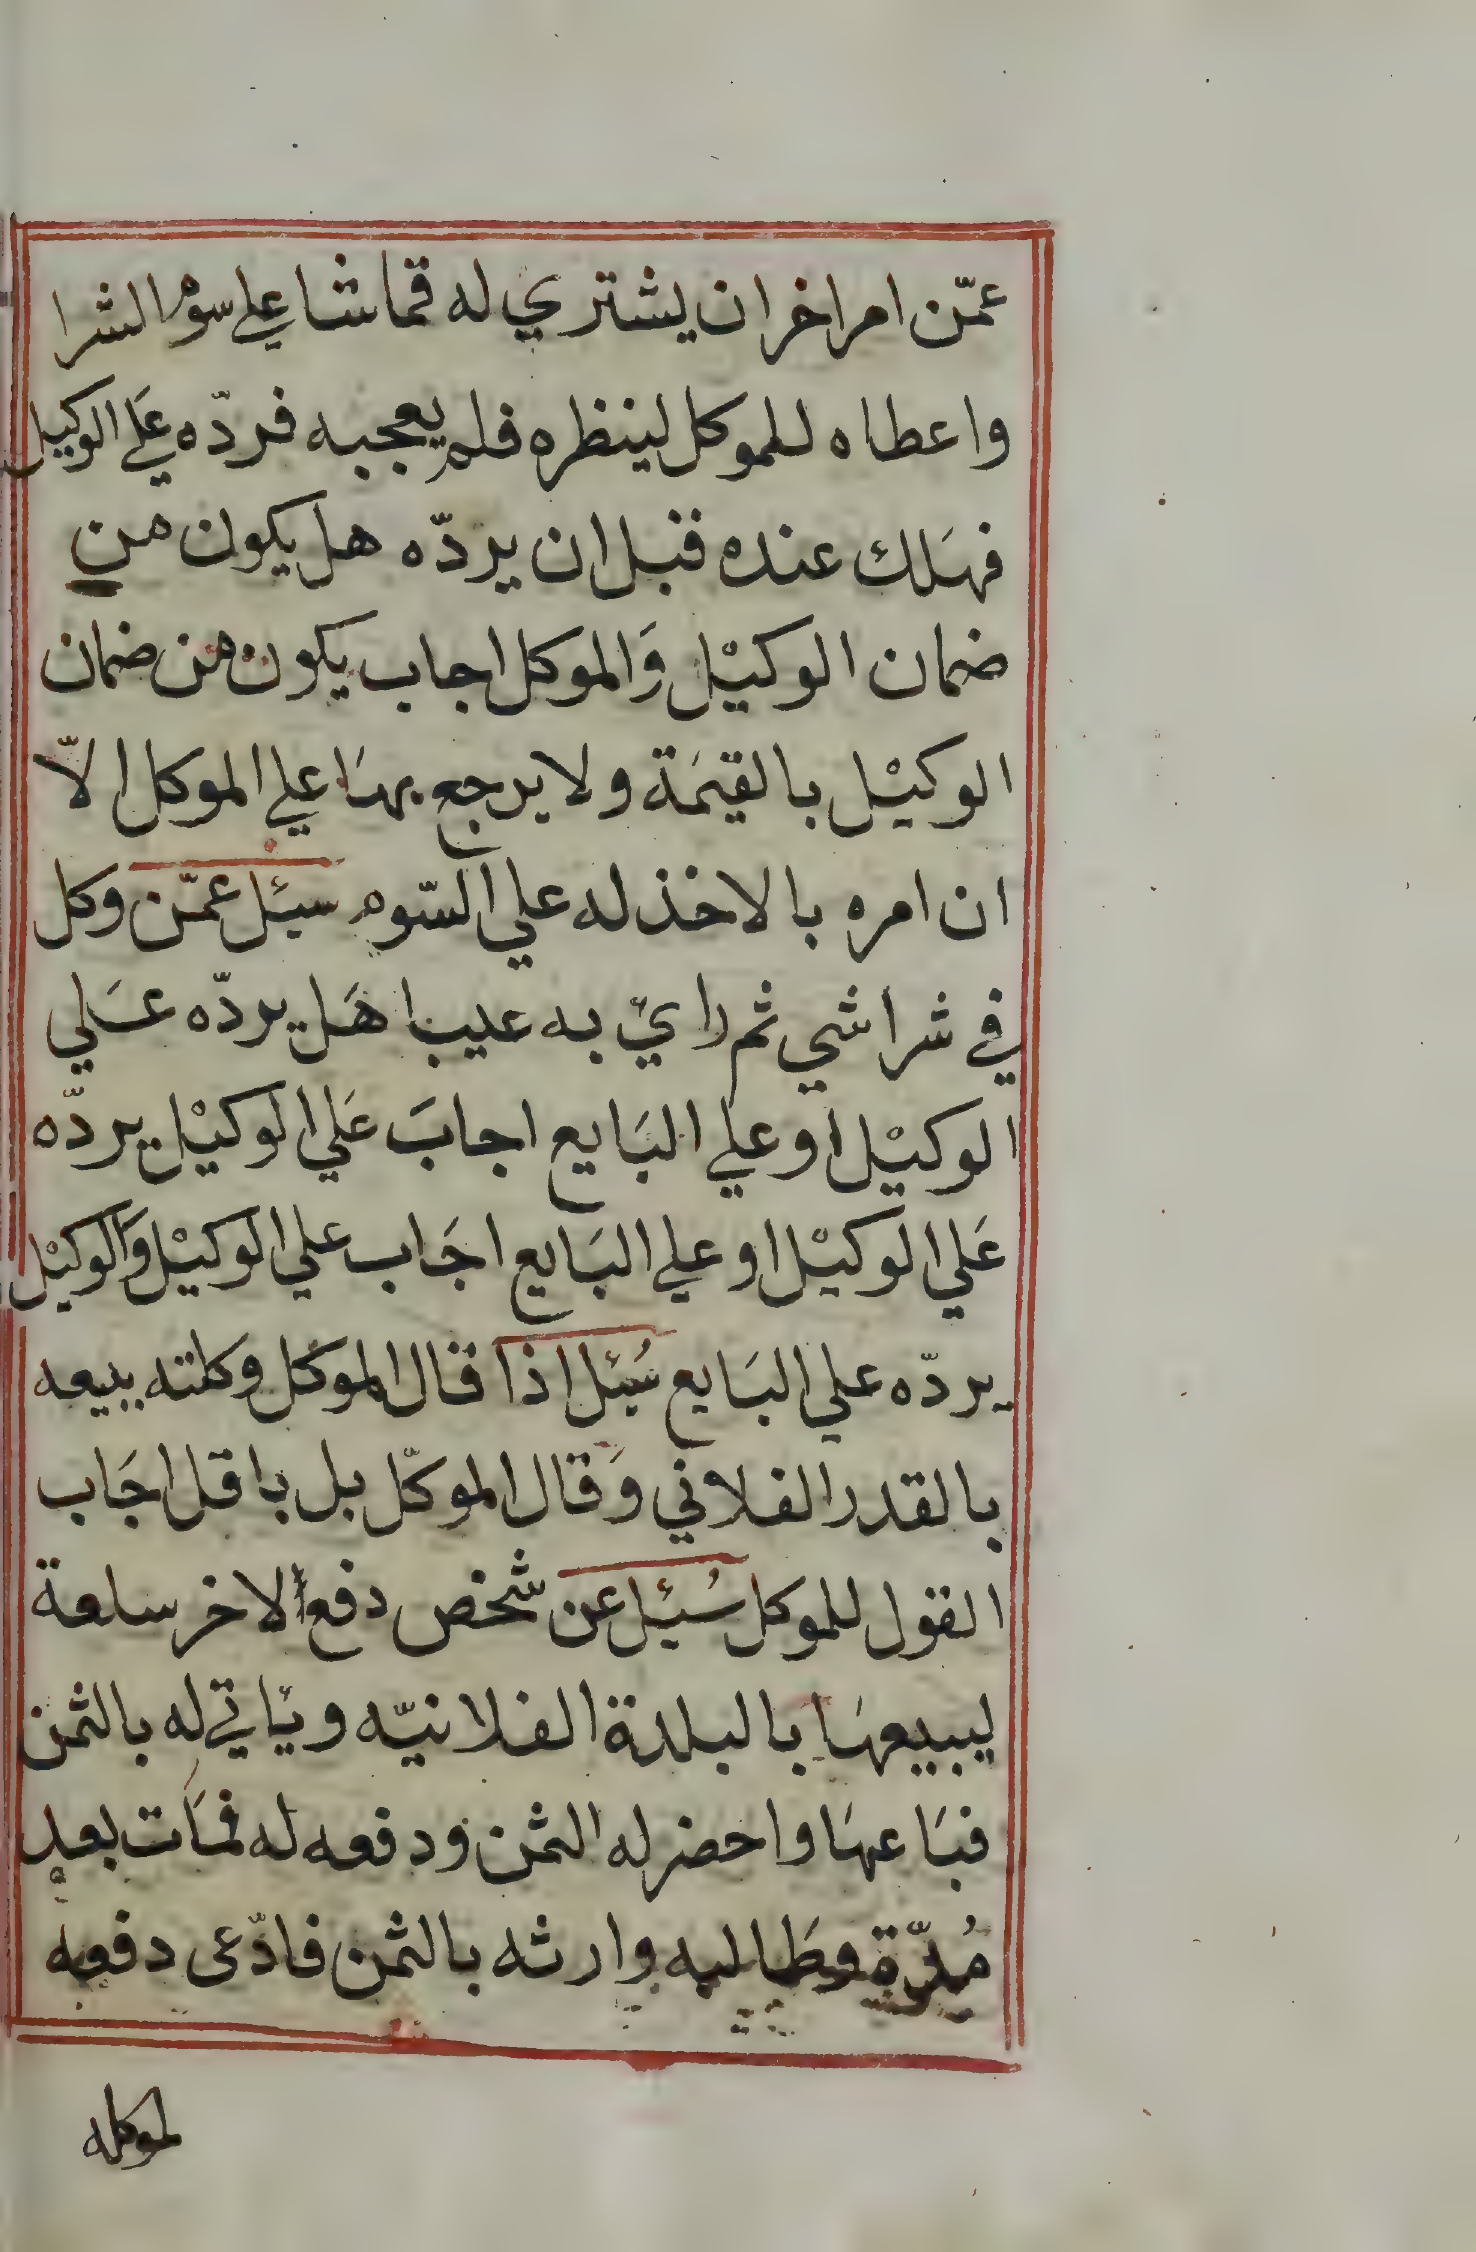 عمّن امر اخر ان يشتري له قماشا علي سوم الشرا
واعطاه للموكل لينظره فلم يعجبه فردّه عَلي الوكيل
فهَلك عنده قبل ان يردّه هل يكون من
ضمان الوكيْل وَالموكل اجاب يكون من ضمان
الوكيْل بالقيمَة ولا يرجع بهَا علي الموكل الاّ
ان امره بالاخذ له علي السّوم سئل عمّن وكل
في شرا شي ثم راي به عيبا هَل يردّه عَلي
الوكيْل او علي البَايع اجابَ عَلي الوكيْل يردّه
عَلي الوكيْل او علي البَايع اجَاب علي الوكيْل وَالوكيْل
يردّه علي البَايع سُئل اذا قال الموكل وكلته ببيعه
بالقدر الفلاني وَقال الموكّل بل باقل اجَاب
القول للموكل سُئل عن شخص دفع لاخر سلعة
ليبيعهَا بالبلدة الفلانيّه وياتي له بالثمن
فبَاعهَا واحضر له الثمن ودفعه له فمَات بعد
مُدّة وطَالبه وارثه بالثمن فادّعى دفعه
لموكله